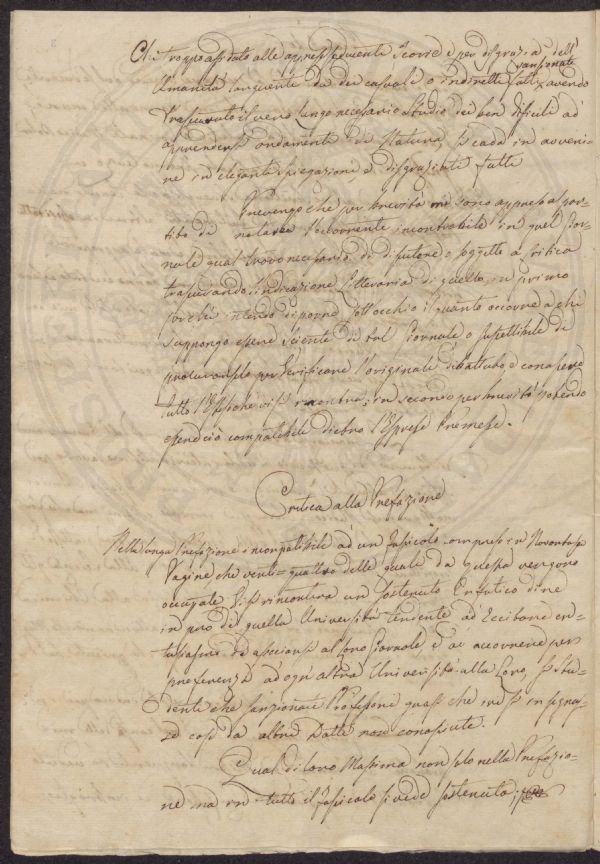 troppo assidato alle appress seguente Teorie e per disgrazia dell'
Umanità languente da dei casuali o indiretti fatti vansonate avendo
trascurato il vero lungo necessario studio dei ben dificili ad
apprendersi andamenti di Natura, si cada in avveni-
re in elegante spiegazione di disgraziati fatti
Prevengo che per brevità mi sono appreso al par-
tito di notare l'occorrente incontrabile in quel Gior-
nale qual trovo necessario di disputare o soggetto a Critica
trascurando l'indicazione litteraria di quello, in primo
perchè intendo di porne sott'occhio il quanto occorre a chi
suppongo essere sciente di tal Giornale o suscettibile di
procurarselo per verificare l'originale dibattuto, e conoscere
tutto l'Esposto vi si rincontra; in secondo per brevità potendo
essere ciò compatibile dietro l'Espresse Premesse.
Critica alla Prefazione
Nella lunga Prefazione incompatibile ad un fascicolo compreso in Novantasei
Pagine che venti-quattro delle quale da questa vengono
occupate si rincontra un sostenuto Enfatico dire
in pro di quella Università tendente ad Eccitare en-
tusiasmo di associarsi al loro Giornale e di accorrere per
preferenza ad ogni altra Università alla Loro, sì Stu-
denti che sanzionati Professori quasi che ivi si insegnas-
se cose da altre Dotte non conosciute.
Qual di loro Massima non solo nella Prefazio-
ne ma in tutto il fascicolo si vede sostenuta;